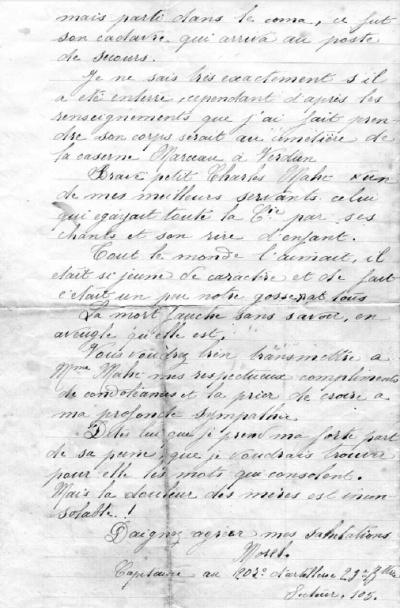 mais parti dans le coma, ce fut
son cadavre qui arriva au poste
de secours.
Je ne sais très exactement s'il
a été enterré, cependant d'après les
renseignements que j'ai fait pren-
dre son corps serait au cimetière de
la caserne Marceau à Verdun
Brave petit Charles Mahe un
de mes meilleurs servants celui
qui égayait toute la Cie par ses
chants et son rire d'enfant.
Tout le monde l'aimait, il
était si jeune de caractère et de fait
c'était un peu notre gosse à tous
La mort fauche sans savoir, en
aveugle qu'elle est.
Vous voudrez bien transmettre a
Mme Mahe mes respectueux compliments
de condoléances et la prier de croire a
ma profonde sympathie
Dites lui que je prend ma forte part
de sa peine, que je voudrais trouver
pour elle les mots qui consolent.
Mais la douleur des mères est incon
solable..!
Daignez agréer mes salutations
Morel.
Capitaine au 202e d'artillerie 29e Bie
Secteur. 105.